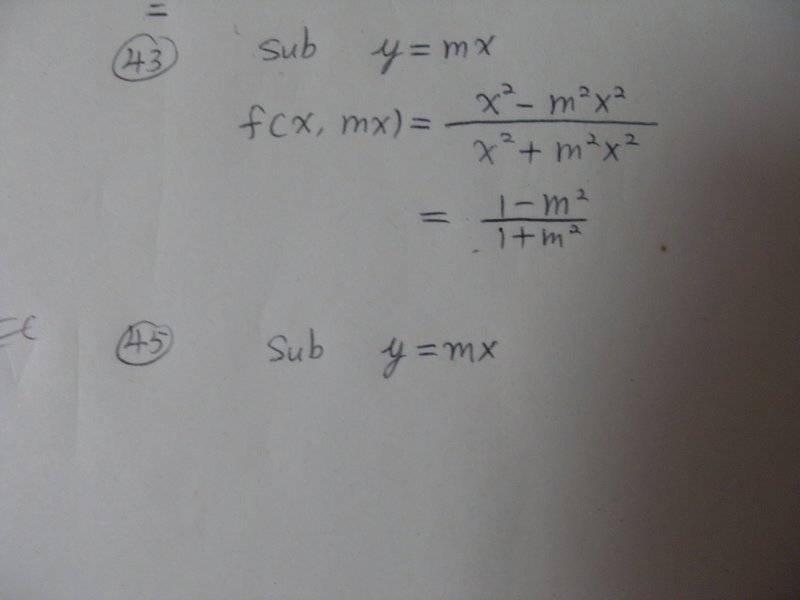 =
43 Sub y = mx
f(x, mx) = x² - m²x² / x² + m²x²
= 1 - m² / 1 + m²
=c
45 Sub y = mx